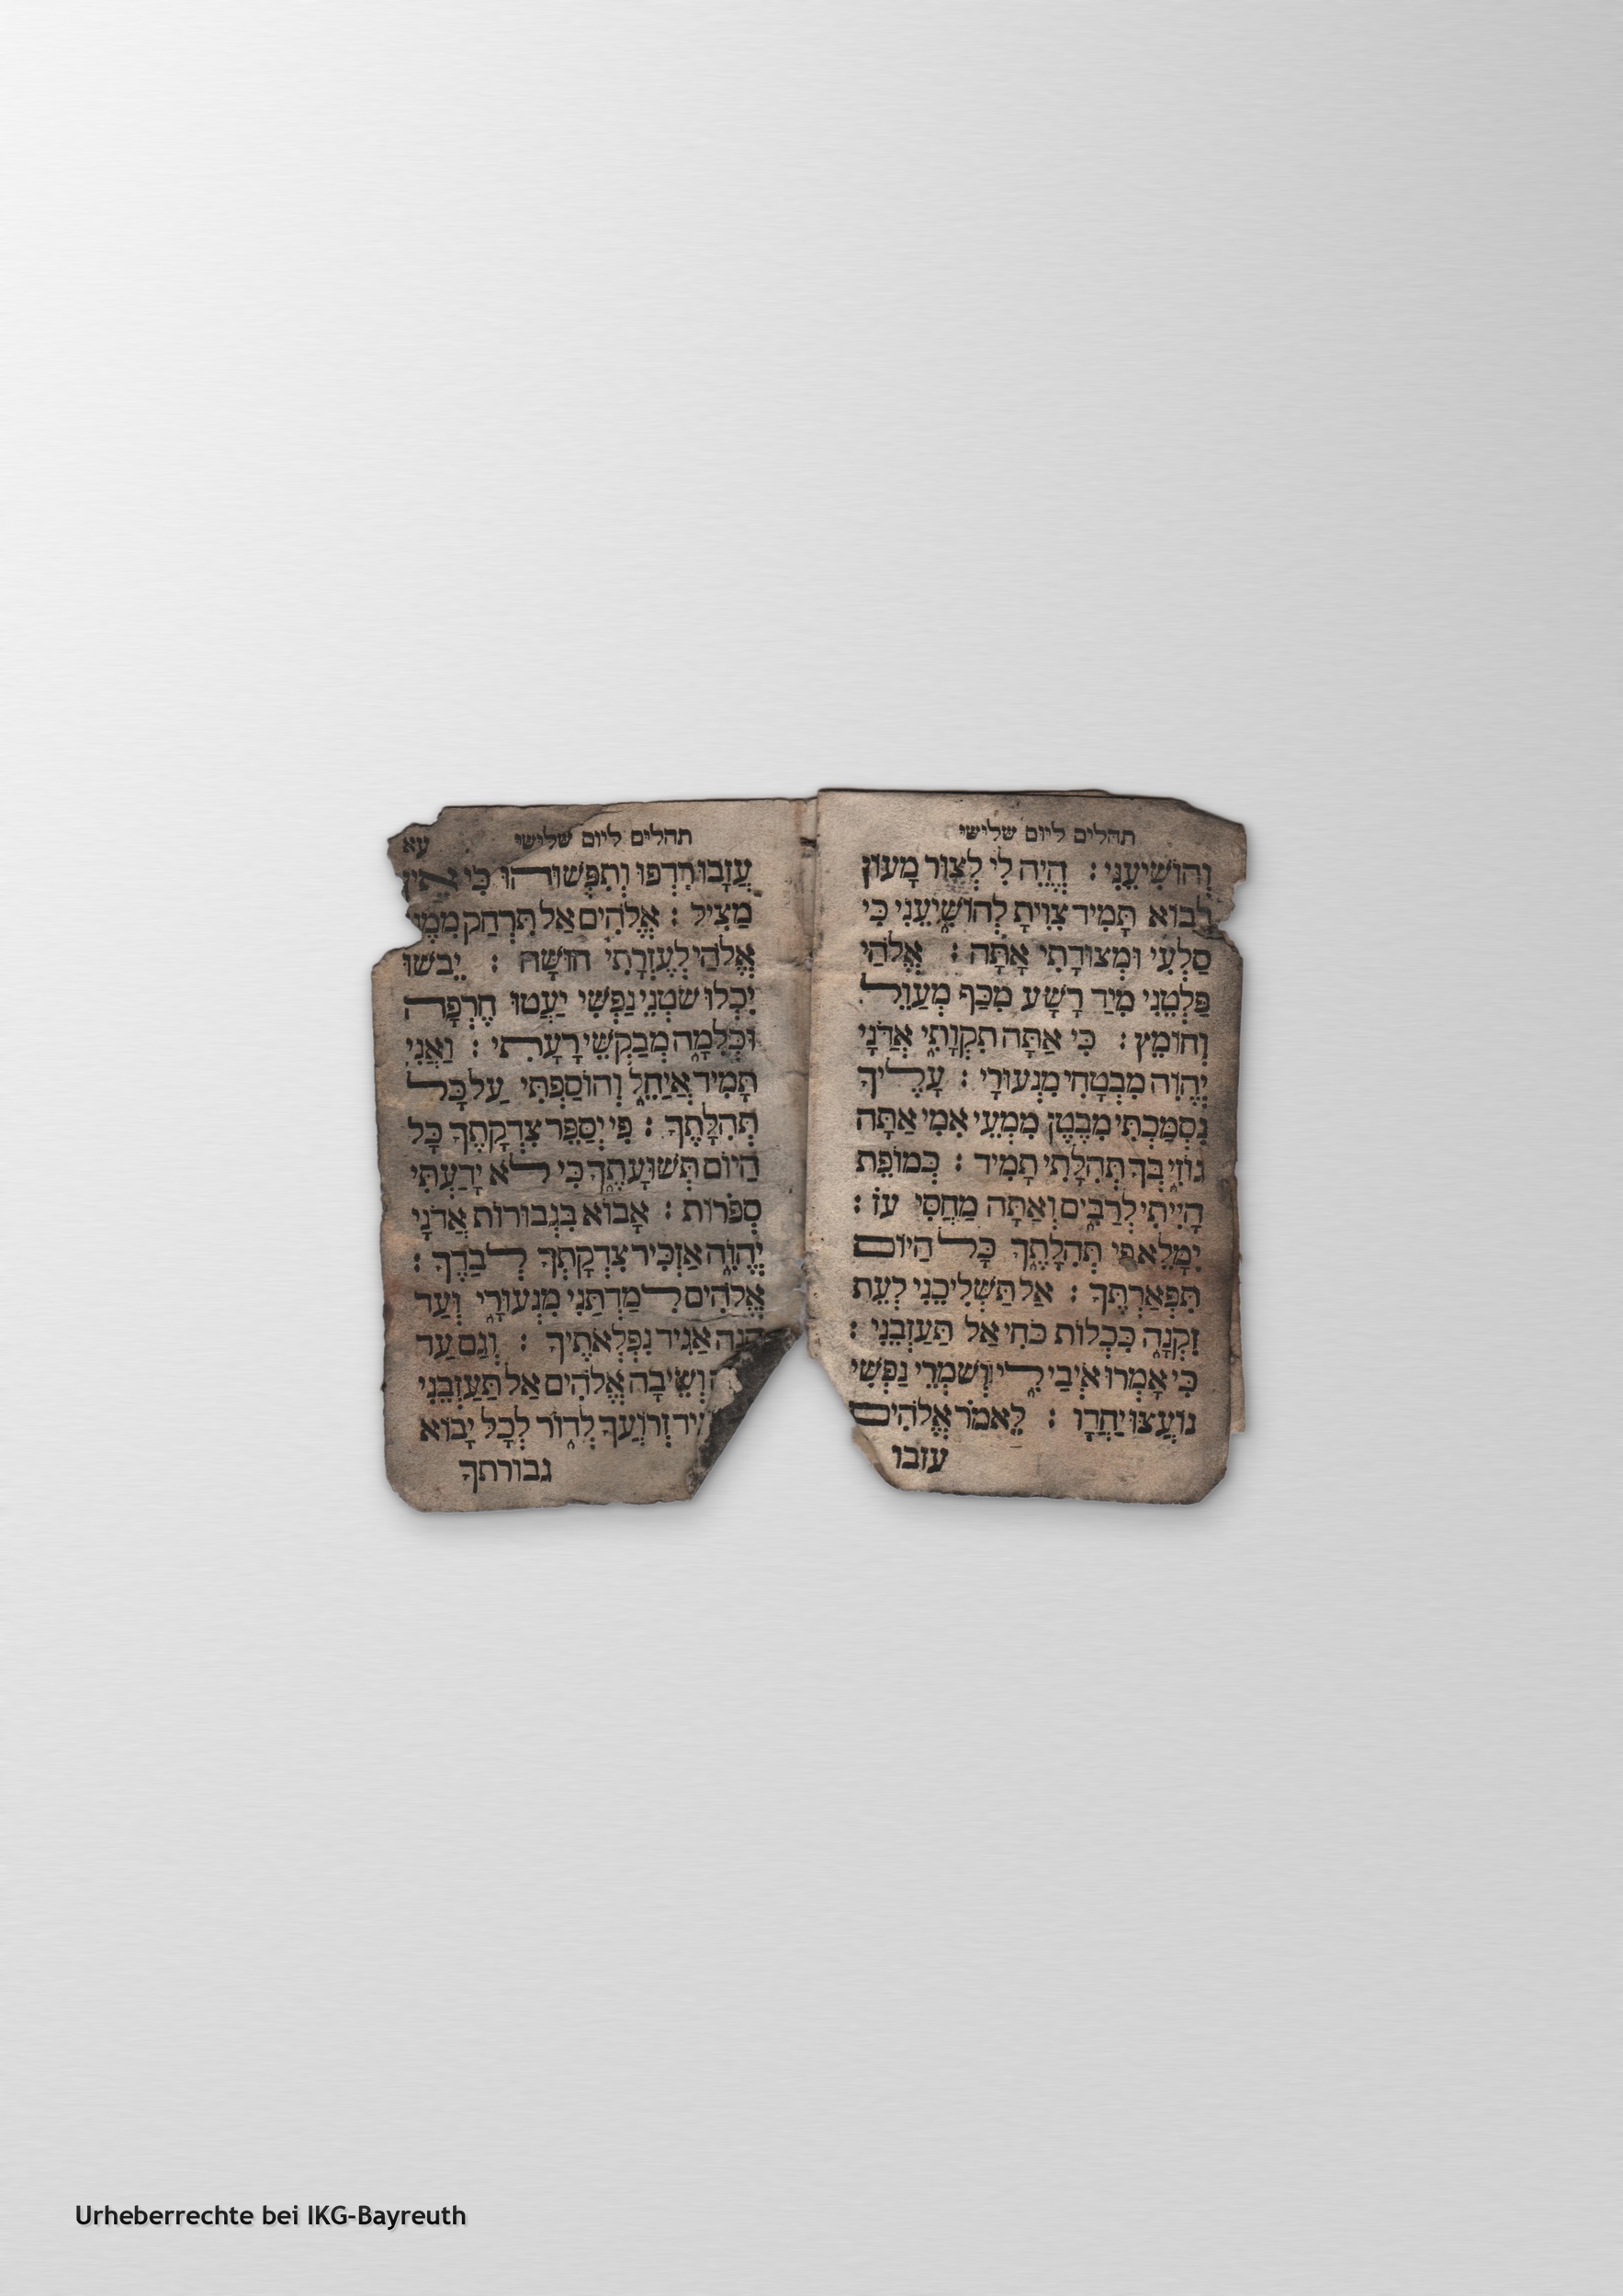 תהלים ליום שלישי
וְהוֹשִׁיעֵנִי : הֱיֵה לִי לְצוּר מָעוֹן
לָבוֹא תָּמִיד צִוִּיתָ לְהוֹשִׁיעֵנִי כִּי
סַלְעִי וּמְצוּדָתִי אָתָּה : אֱלֹהַי
פַּלְּטֵנִי מִיַּד רָשָׁע מִכַּף מְעַוֵּל
וְחוֹמֵץ : כִּי אַתָּה תִקְוָתִי אֲדֹנָי
יֱהֹוִה מִבְטָחִי מִנְּעוּרָי : עָלֶיךָ
נִסְמַכְתִּי מִבֶּטֶן מִמְּעֵי אִמִּי אַתָּה
גוֹזִי בְּךָ תְּהִלָּתִי תָמִיד : כְּמוֹפֵת
הָיִיתִי לְרַבִּים וְאַתָּה מַחֲסִי עֹז :
יִמָּלֵא פִי תְּהִלָּתֶךָ כָּל הַיּוֹם
תִּפְאַרְתֶּךָ : אַל תַּשְׁלִיכֵנִי לְעֵת
זִקְנָה כִּכְלוֹת כֹּחִי אַל תַּעַזְבֵנִי :
כִּי אָמְרוּ אֹיְבַי לִי וְשֹׁמְרֵי נַפְשִׁי
נוֹעֲצוּ יַחְדָּו : לֵאמֹר אֱלֹהִים
עזבו
תהלים ליום שלישי עא
עֲזָבוֹ רִדְפוּ וְתִפְשׂוּהוּ כִּי אֵין
מַצִּיל : אֱלֹהִים אַל תִּרְחַק מִמֶּנִּי
אֱלֹהַי לְעֶזְרָתִי חוּשָׁה : יֵבֹשׁוּ
יִכְלוּ שֹׂטְנֵי נַפְשִׁי יַעֲטוּ חֶרְפָּה
וּכְלִמָּה מְבַקְשֵׁי רָעָתִי : וַאֲנִי
תָּמִיד אֲיַחֵל וְהוֹסַפְתִּי עַל כָּל
תְּהִלָּתֶךָ : פִּי יְסַפֵּר צִדְקָתֶךָ כָּל
הַיּוֹם תְּשׁוּעָתֶךָ כִּי לֹא יָדַעְתִּי
סְפֹרוֹת : אָבוֹא בִּגְבוּרוֹת אֲדֹנָי
יֱהֹוִה אַזְכִּיר צִדְקָתְךָ לְבַדֶּךָ :
אֱלֹהִים לִמַּדְתַּנִי מִנְּעוּרָי וְעַד
הֵנָּה אַגִּיד נִפְלְאֹתֶיךָ : וְגַם עַד
וְשֵׂיבָה אֱלֹהִים אַל תַּעַזְבֵנִי
זְרוֹעֲךָ לְדוֹר לְכָל יָבוֹא
גבורתך
Urheberrechte bei IKG-Bayreuth